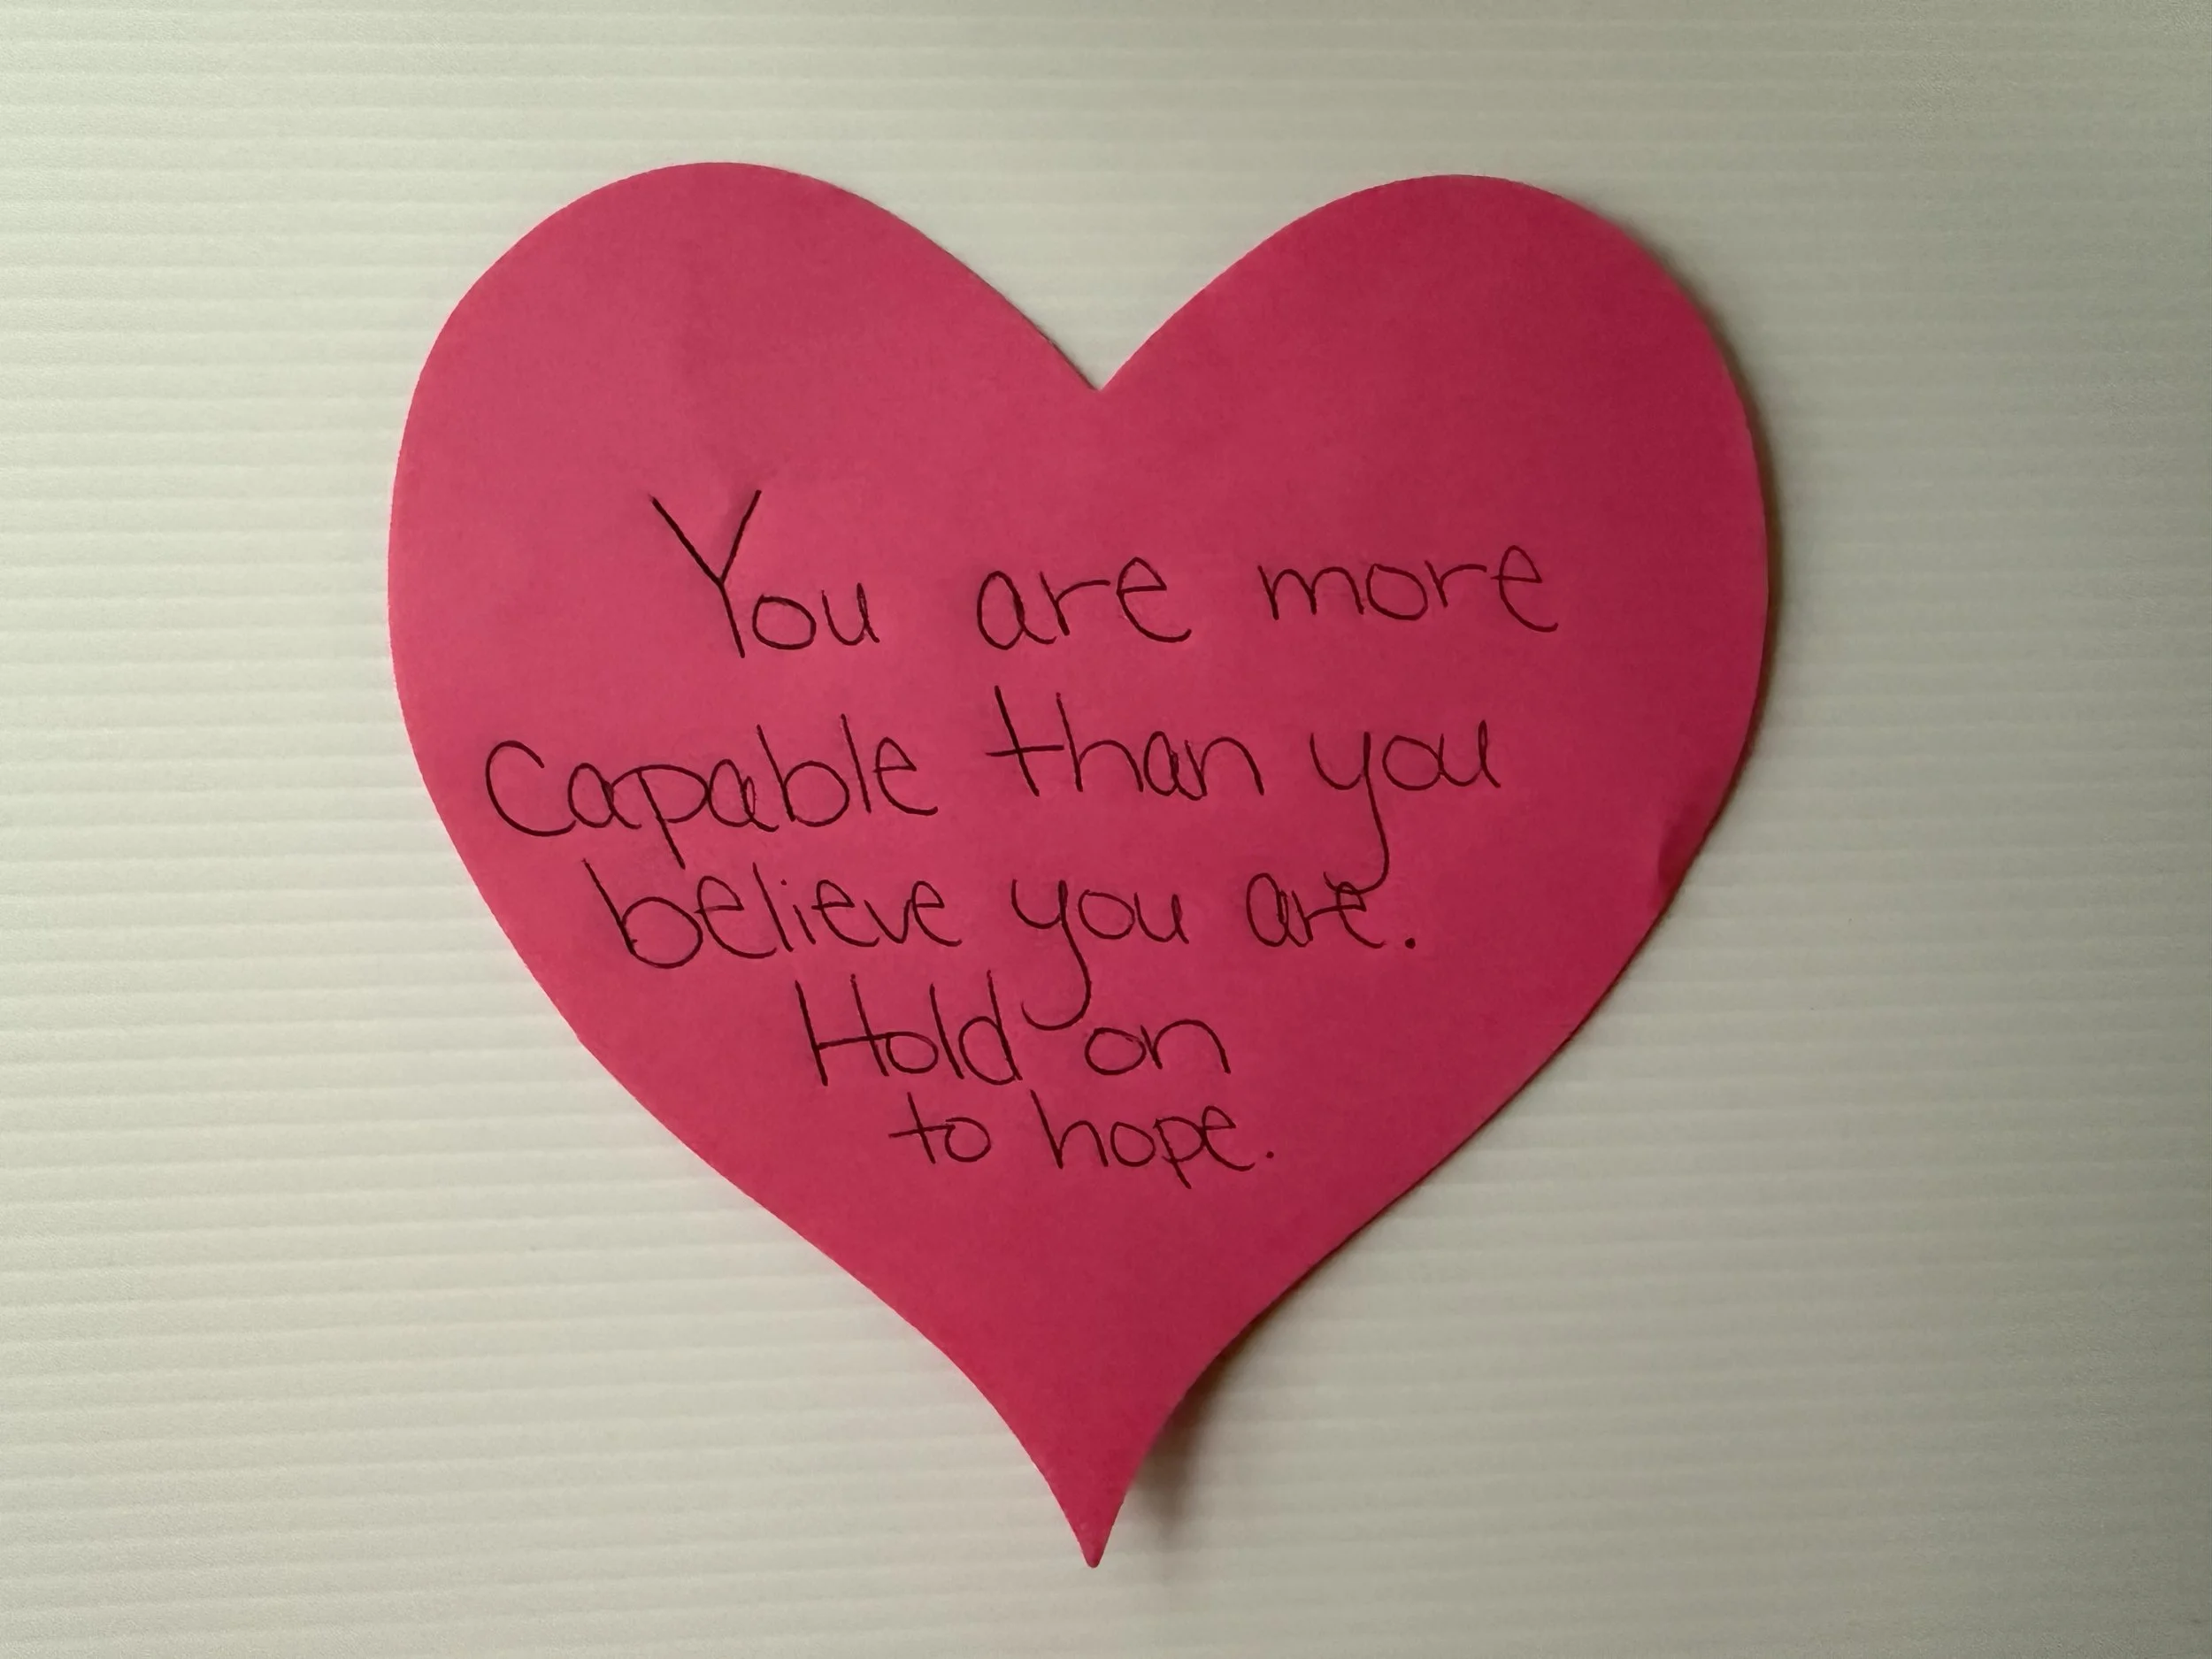 You are more
capable than you
believe you are.
Hold on
to hope.